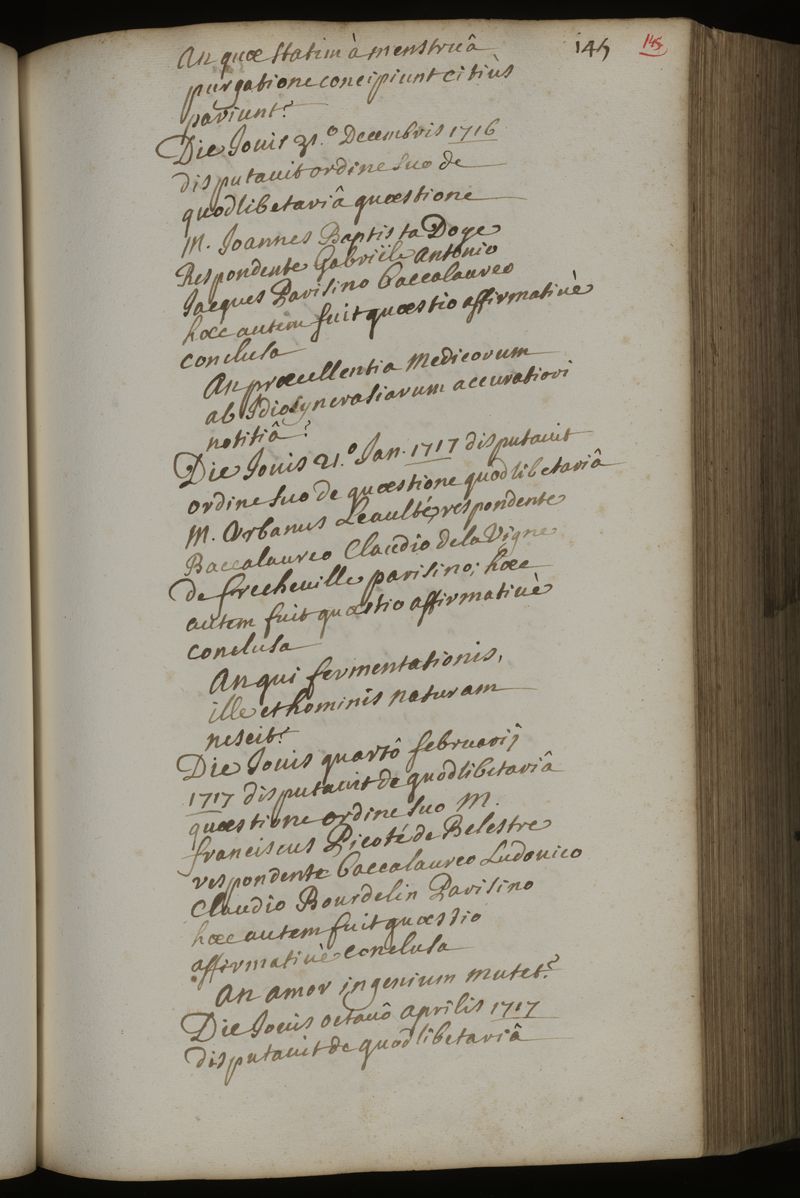 145 145
An quæ statim à menstruâ
purgatione concipiunt citiùs
pariunt?
Die Jouis 31.º Decembris 1716
disputauit ordine suo de
quodlibetariâ quæstione
M. Joannes Baptista Doye
Respondente Gabriële Antonio
Jacques Parisino baccalaureo
hæc autem fuit quæstio affirmatiuè
conclusa
An præcellentia Medicorum
ab Idiosyncrasiarum accuratiori
notitiâ?
Die Jouis 21.º Jan. 1717 disputauit
ordine suo de quæstione quodlibetariâ
M. Vrbanus Leaulté, respondente
Baccalaureo Claudio de la Vigne
de frecheuille parisino; hæc
autem fuit quæstio affirmatiuè
conclusa
An qui fermentationis,
ille et hominis naturam
nescit?
Die Jouis quartô februarij
1717 disputauit de quodlibetariâ
quæstione ordine suo M.
franciscus Picoté de Belestre
respondente baccalaureo Ludouico
Claudio Bourdelin Parisino
hæc autem fuit quæstio
affirmatiuè conclusa
An amor ingenium mutet?
Die Jouis octauô aprilis 1717
disputauit de quodlibetariâ